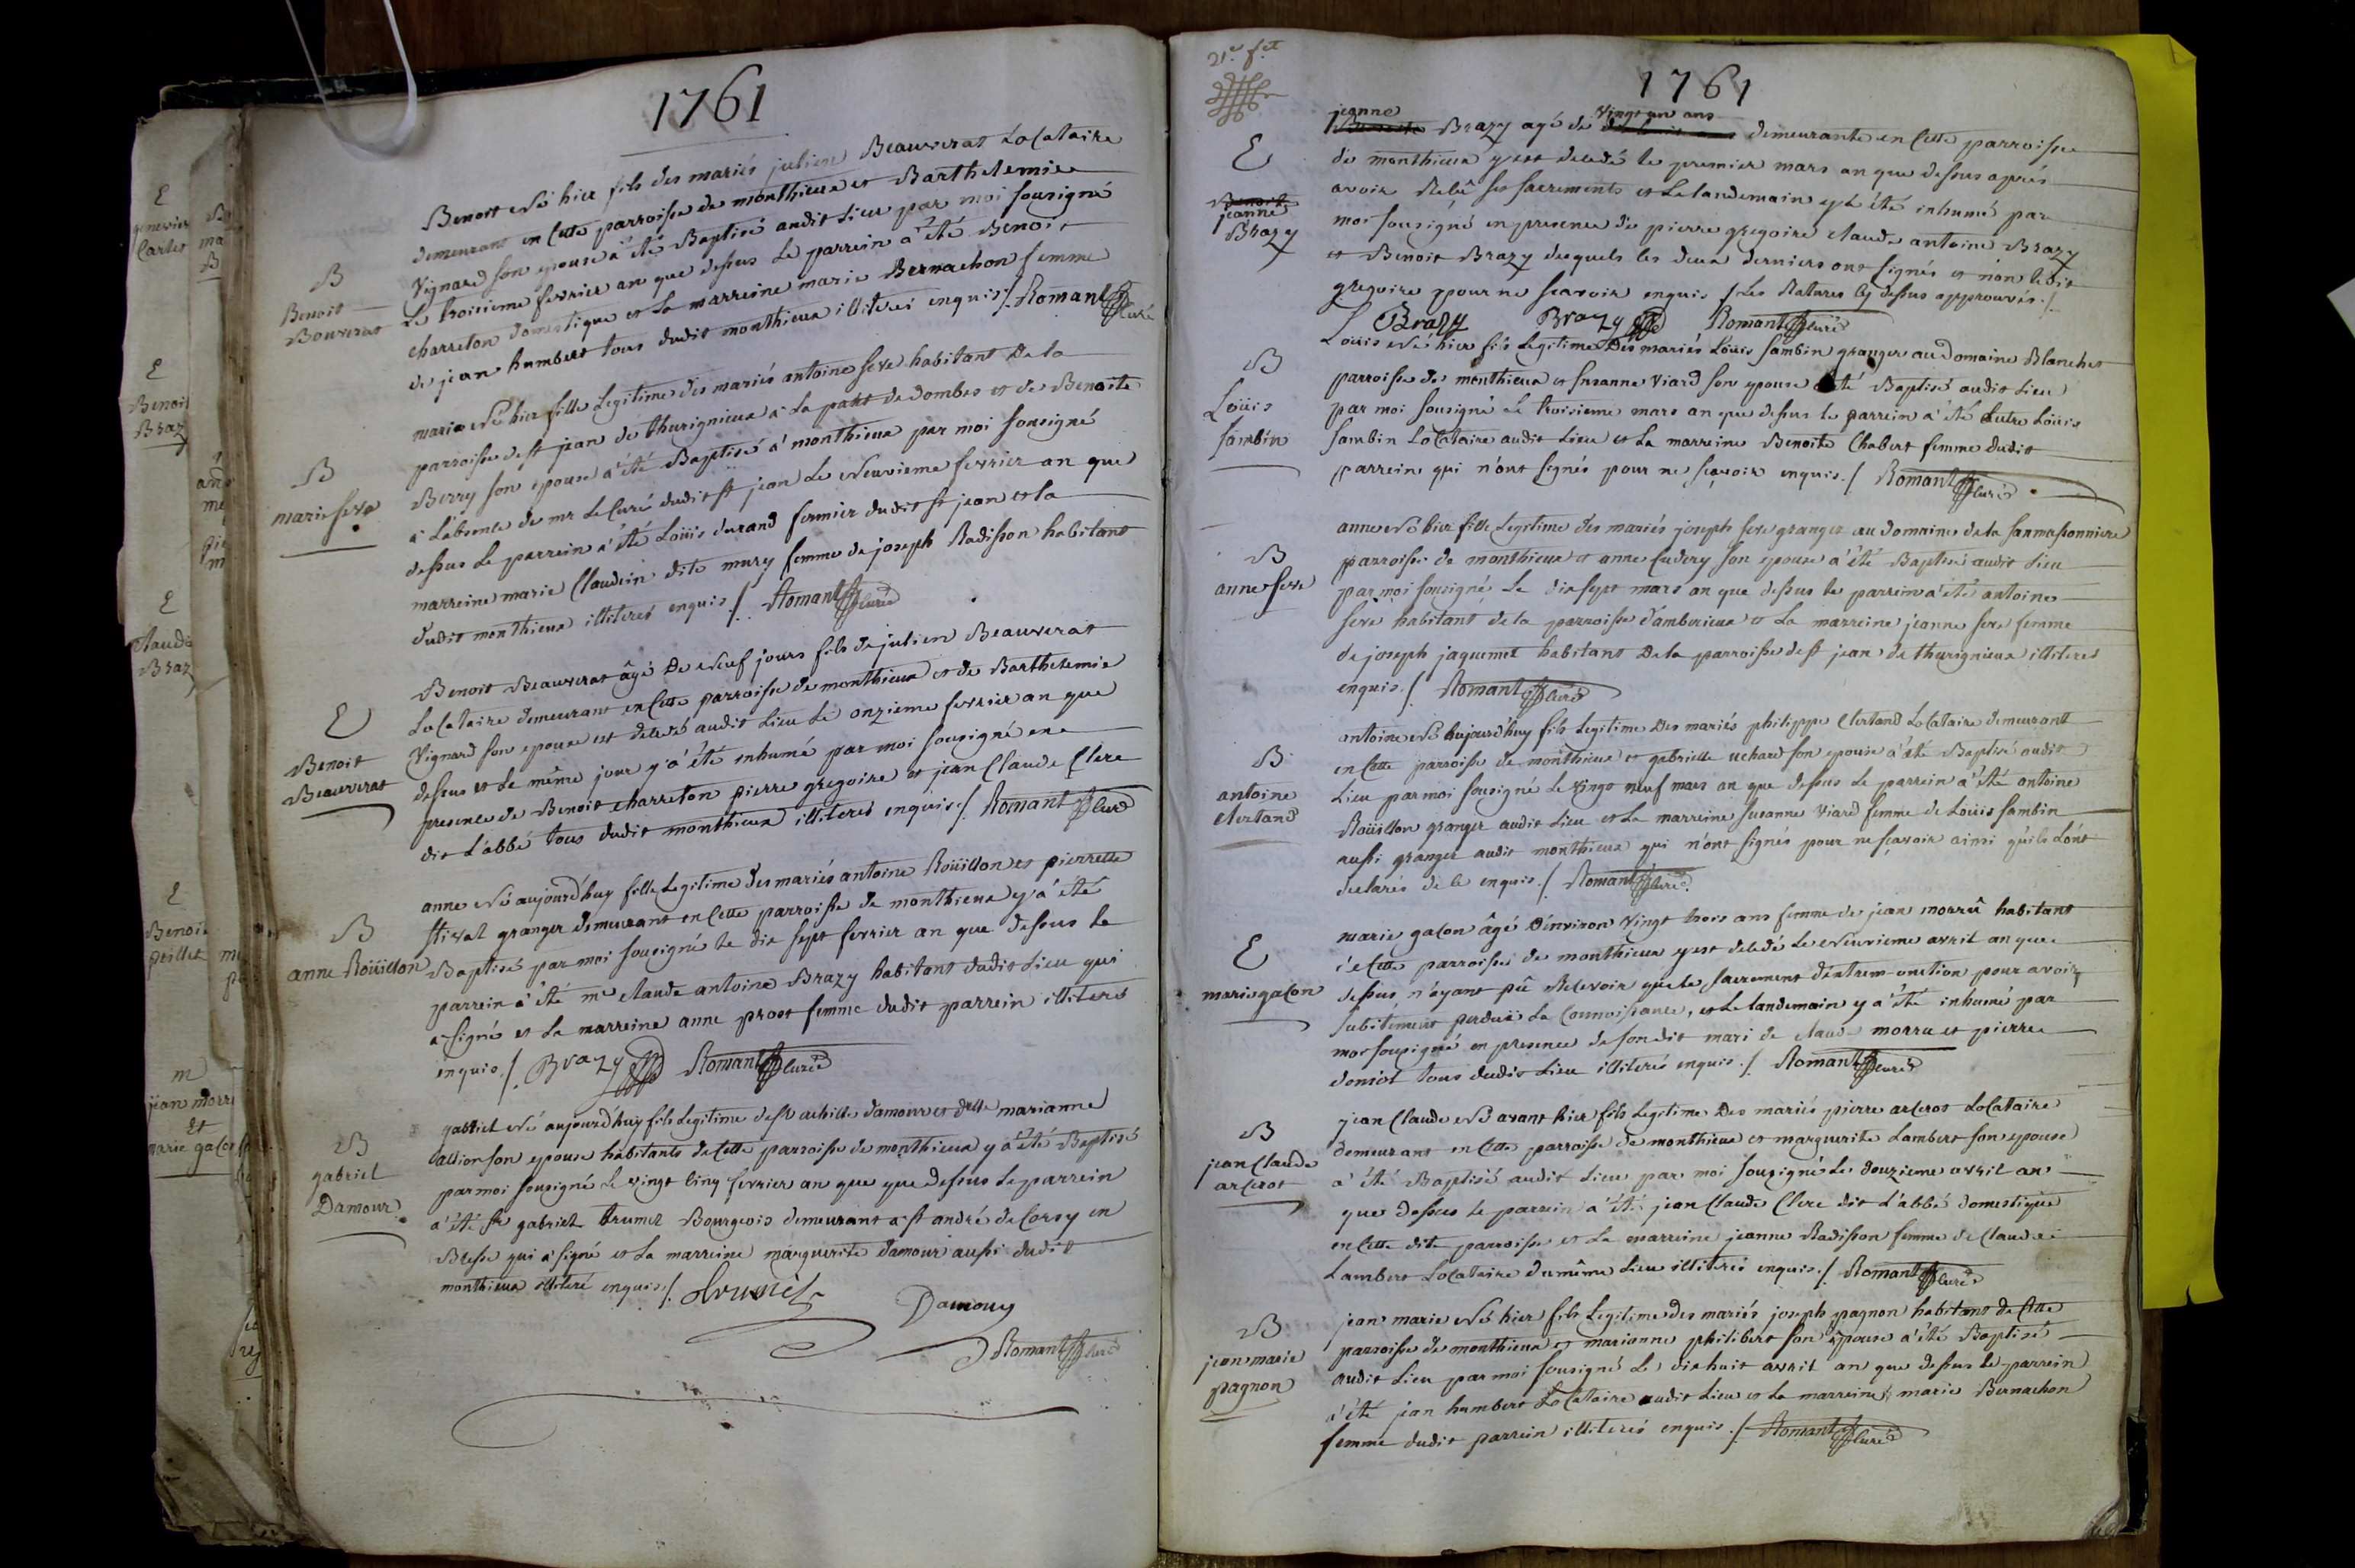 1761
B
Benoit
Bouverat
Benoit Né hier fils des mariés julien Beauverat Locataire
demeurant en Cette parroisse de monthieux et Barthelemie
Vignard son epouse a été Baptisé audit Lieu par moi sousigné
Le troisieme fevrier an que dessus Le parrein a été Benoit
charreton domestique et La marreine marie Bernachon femme
de jean humbert tous dudit monthieux illiterés enquis ./. Romant Curé
B
marie seve
marie Né hier fille Legitime des mariés antoine seve habitant De la
parroisse de st jean de thurignieux a La part de dombes et de Benoite
Berry son epouse a été Baptisé a monthieux par moi sousigné
a L'absence de mr Le Curé dudit st jean Le Neuvieme fevrier an que
dessus Le parrein a été Loüis durand fermier dudit st jean et la
marreine marie Claudein dite mury femme de joseph Radisson habitant
dudit monthieux illiterés enquis ./. Romant Curé
E
Benoit
Beauverat
Benoit Beauverat âgé De Neuf jours fils de julien Beauverat
Locataire demeurant en Cette parroisse de monthieux et de Barthelemie
Vignard son epouse est decedé audit Lieu Le onzieme fevrier an que
dessus et Le même jour y a été inhumé par moi sousigné en
presence de Benoit charreton pierre gregoire et jean Claude Clerc
dit L'abbé tous dudit monthieux illiterés enquis ./. Romant Curé
B
anne Roüillon
anne Né aujourd'huy fille Legitime des mariés antoine Roüillon et pierrette
stival granger demeurant en Cette parroisse de monthieux y a été
Baptisé par moi sousigné le dix sept fevrier an que dessus Le
parrein a été me claude antoine Brazy habitant dudit Lieu qui
a signé et La marreine anne prost femme dudit parrein illiteré
enquis ./. Brazy Romant Curé
B
gabriel
Damour
gabriel Né aujourd'huy fils Legitime de sr achille damour et dlle marianne
allion son epouse habitants de Cette parroisse de monthieux y a été Baptisé
par moi sousigné Le vingt Cinq fevrier an que que dessus Le parrein
a été sr gabriel trumet Bourgeois demeurant a st andré de Corsy en
Bresse qui a signé et La marreine marguerite damour aussi dudit
monthieux illiteré enquis ./. trumet
Damour
Romant Curé
21e f et
1761
E
Benoit
jeanne
Brazy
jeanne Vingt un ans
Brazy agé de demeurante en Cette parroisse
de monthieux y est decedé le premier mars an que dessus aprés
avoir Recû ses sacrements et Le landemain y a été inhumé par
moi sousigné en presence de pierre gregoire claude antoine Brazy
et Benoit Brazy desquels les deux derniers ont signés et non ledit
gregoire pour ne scavoir enquis ./. Les Ratures Cy dessus approuvés ./.
Brazy Brazy Romant Curé
B
Loüis
sambin
Loüis Né hier fils Legitime Des mariés Loüis sambin granger au domaine Blanchet
parroisse de monthieux et susanne Viard son epouse a été Baptisé audit Lieu
par moi sousigné Le troisieme mars an que dessus le parrein a été autre Loüis
sambin Locataire audit Lieu et La marreine Benoite Chabert femme dudit
parrein qui n'ont signés pour ne sçavoir enquis ./. Romant Curé
B
anne seve
anne Né hier fille Legitime des mariés joseph seve granger au domaine de la sanmassonniere
parroisse de monthieux et anne Cudery son epouse a été Baptisé audit Lieu
par moi sousigné Le dix sept mars an que dessus le parrein a été antoine
seve habitant de la parroisse d'amberieux et La marreine jeanne seve femme
de joseph jaquemet habitant De la parroisse de st jean de thurignieux illiterés
enquis ./. Romant Curé
B
antoine
Clertand
antoine Né aujourd'huy fils Legitime Des mariés philippe Clertand Locataire demeurant
en Cette parroisse de monthieux et gabrielle uchard son epouse a été Baptisé audit
Lieu par moi sousigné Le vingt neuf mars an que dessus Le parrein a été antoine
Roüillon granger audit Lieu et La marreine susanne Viard femme de Loüis sambin
aussi granger audit monthieux qui n'ont signés pour ne sçavoir ainsi qu'ils L'ont
declarés de ce enquis ./. Romant Curé
E
marie galon
marie galon âgé D'environ vingt trois ans femme de jean morrû habitant
de Cette parroisse de monthieux y est decedé Le Neuvieme avril an que
dessus n'ayant pû Recevoir que le sacrement d'extrem-onction pour avoir
subitement perduë La Connoissance, et Le landemain y a été inhumé par
moi sousigné en presence de son dit mari de claude morru et pierre
doniot tous dudit Lieu illiterés enquis ./. Romant Curé
B
jean Claude
arcerot
jean Claude Né avant hier fils Legitime Des mariés pierre arcerot Locataire
demeurant en Cette parroisse de monthieux et marguerite Lambert son epouse
a été Baptisé audit Lieu par moi sousigné Le douzieme avril an
que dessus le parrein a été jean Claude Clerc dit L'abbé domestique
en Cette dite parroisse et La marreine jeanne Radisson femme de Claude
Lambert Locataire du même Lieu illiterés enquis ./. Romant Curé
B
jean marie
pagnon
jean marie Né hier fils Legitime des mariés joseph pagnon habitant de Cette
parroisse de monthieux et marianne philibert son epouse a été Baptisé
audit Lieu par moi sousigné Le dix huit avril an que dessus le parrein
a été jean humbert Locataire audit Lieu et La marreine marie Bernachon
femme dudit parrein illiterés enquis ./. Romant Curé